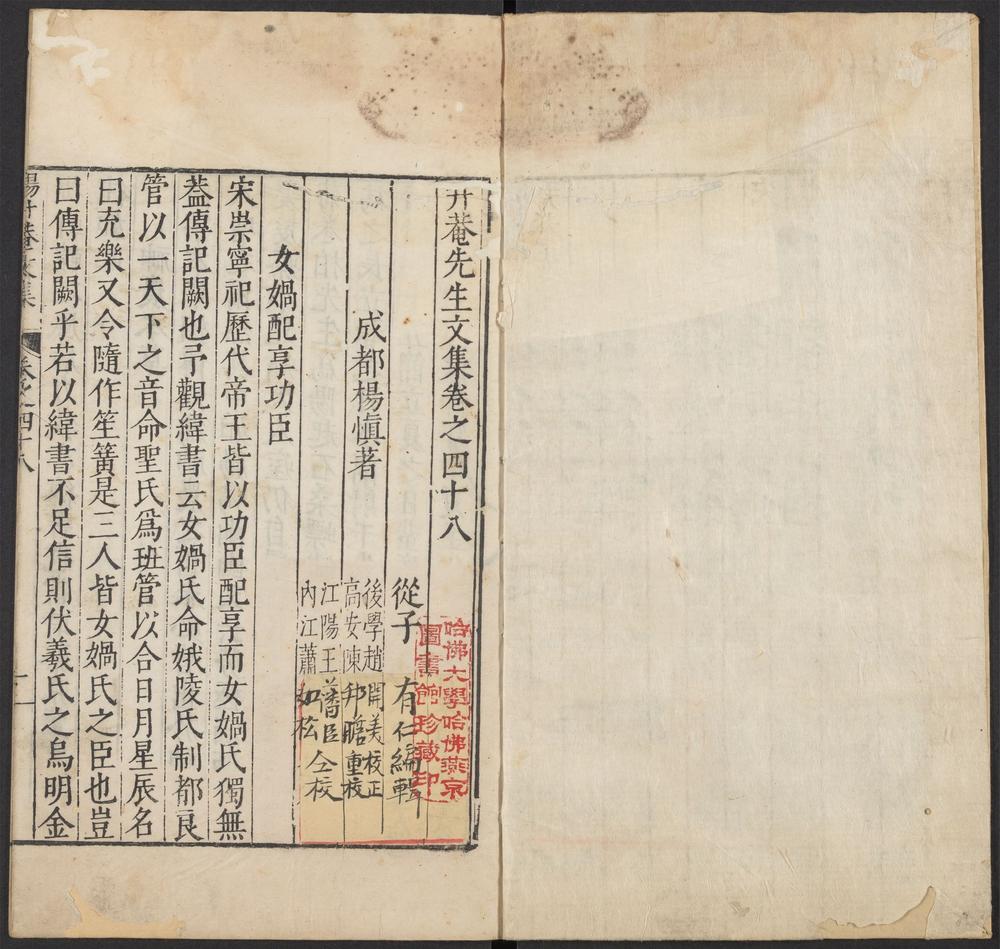 升菴先生文集卷之四十八
從子 有仁編輯
成都楊慎著
後學趙開美校正
高安陳邦瞻重校
江陽王藩臣
內江蕭如松仝校
女媧配享功臣
宋崇寧祀歷代帝王皆以功臣配享而女媧氏獨無
葢傳記闕也予觀緯書云女媧氏命娥陵氏制都良
管以一天下之音命聖氏爲班管以合日月星辰名
曰充樂又令隨作笙簧是三人皆女媧氏之臣也豈
曰傳記闕乎若以緯書不足信則伏羲氏之烏明金
楊升菴文集
卷之四十八
一
哈佛大學哈佛燕京
圖書館珍藏印